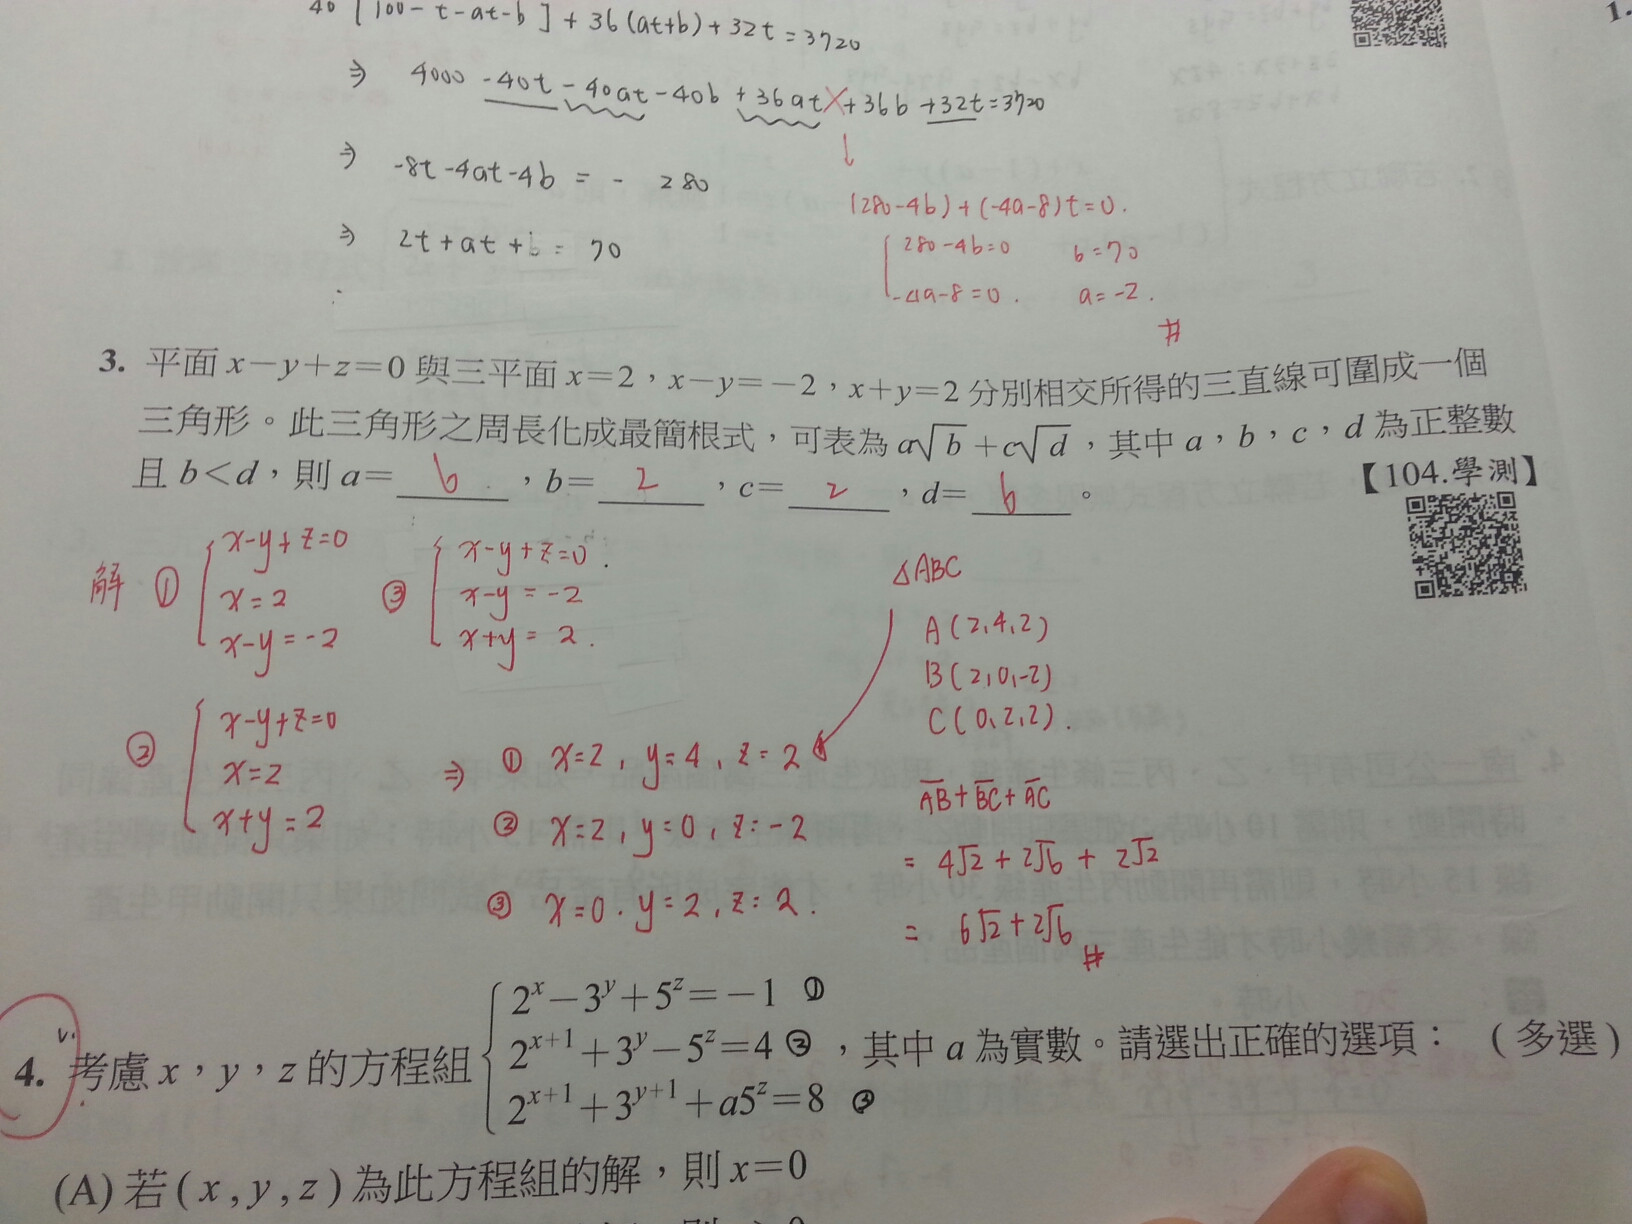 40 [ 100 - t - at - b ] + 36 (at+b) + 32t = 3720
⇒ 4000 - 40t - 40at - 40b + 36at + 36b + 32t = 3720
⇒ -8t - 4at - 4b = - 280
↓
(280-4b) + (-4a-8)t = 0.
⇒ 2t + at + b = 70
280-4b=0 b=70
-4a-8=0. a=-2.
#
3. 平面 x－y＋z＝0 與三平面 x＝2，x－y＝－2，x＋y＝2 分別相交所得的三直線可圍成一個
三角形。此三角形之周長化成最簡根式，可表為 a√b＋c√d，其中 a，b，c，d 為正整數
且 b＜d，則 a＝ 6 ，b＝ 2 ，c＝ 2 ，d＝ 6 。
【104.學測】
解 ① { x-y+z=0
x=2
x-y=-2
③ { x-y+z=0.
x-y=-2
x+y=2.
② { x-y+z=0
x=2
x+y=2
⇒ ① x=2, y=4, z=2
② x=2, y=0, z=-2
③ x=0. y=2, z=2.
△ABC
A(2,4,2)
B(2,0,-2)
C(0,2,2).
AB+BC+AC
= 4√2 + 2√6 + 2√2
= 6√2 + 2√6 #
4. 考慮 x，y，z 的方程組 { 2^x－3^y＋5^z＝－1 ①
2^(x+1)＋3^y－5^z＝4 ② ，其中 a 為實數。請選出正確的選項：（多選）
2^(x+1)＋3^(y+1)＋a5^z＝8 ③
(A) 若 (x , y , z) 為此方程組的解，則 x＝0